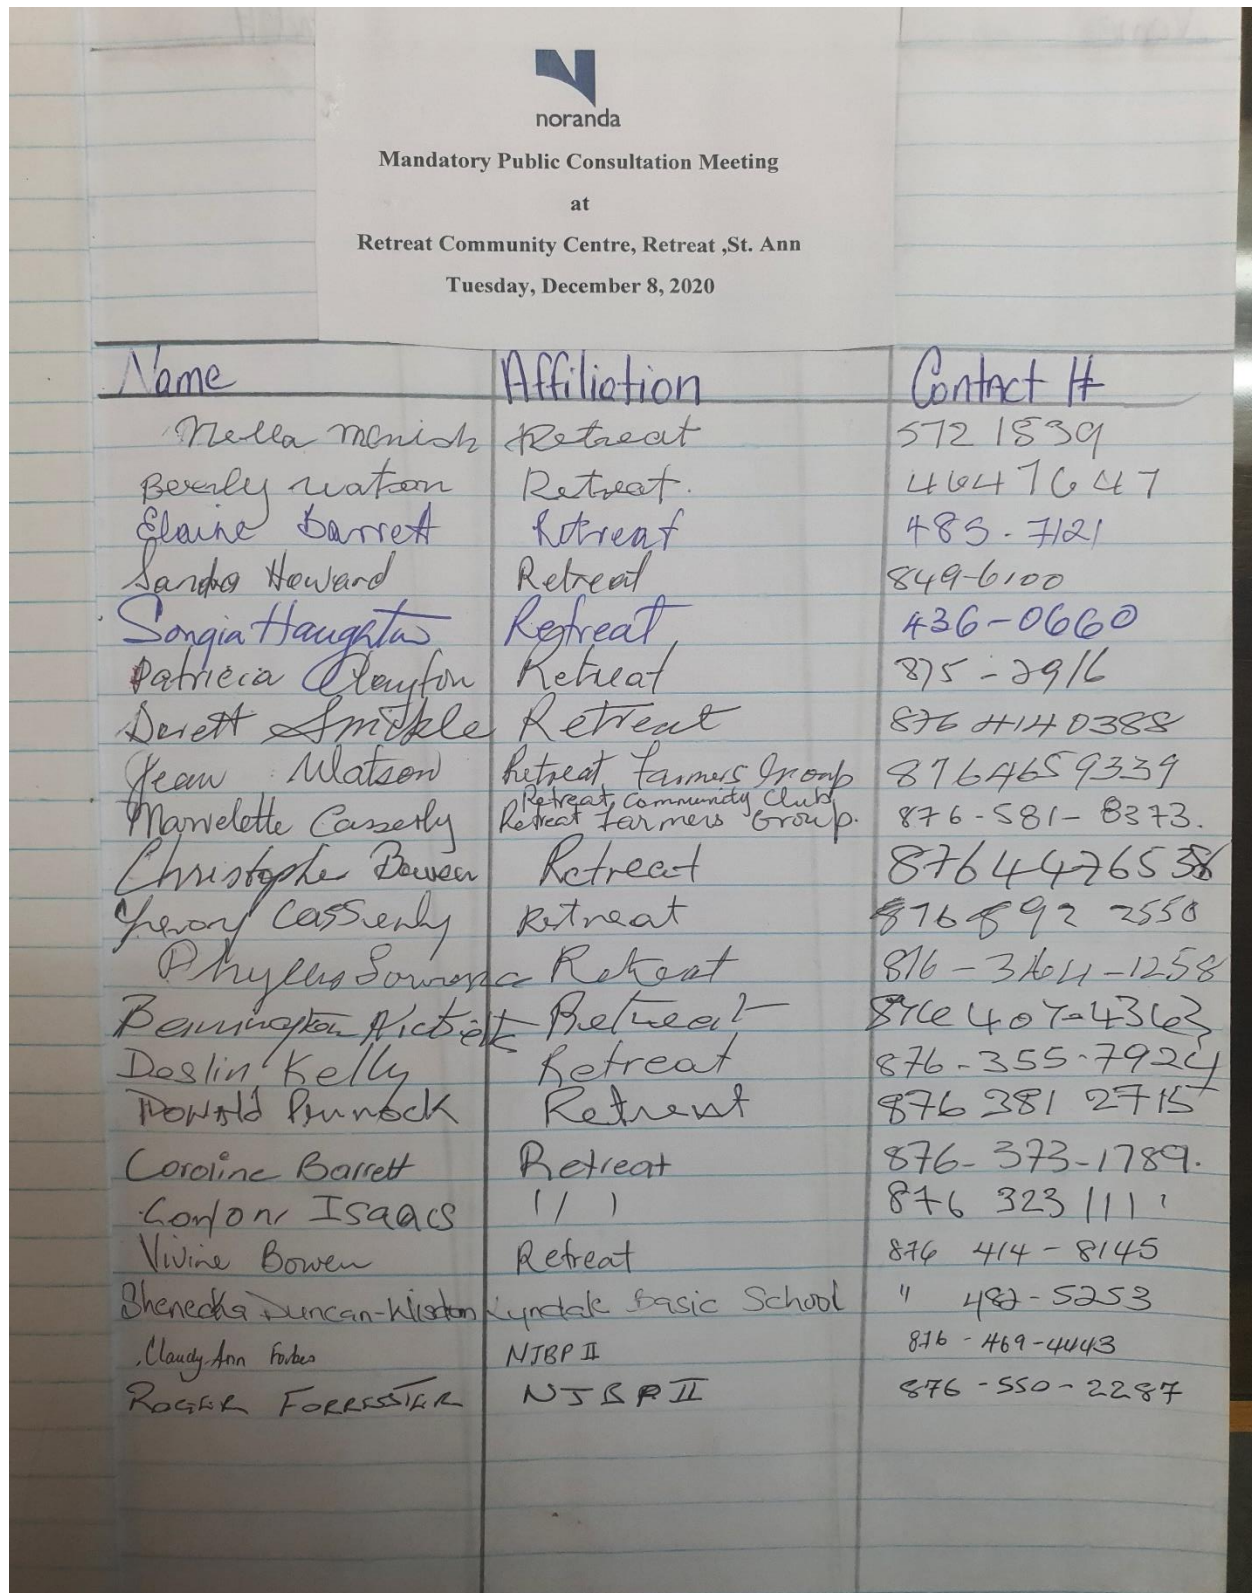 noranda
Mandatory Public Consultation Meeting
at
Retreat Community Centre, Retreat ,St. Ann
Tuesday, December 8, 2020
Name Affiliation Contact #
Nella Retreat 572 1839
Beverly Watson Retreat. 4647647
Elaine Barrett Retreat 483-7121
Sandra Howard Retreat 849-6100
Songia Haughton Retreat 436-0660
Patricia Clayton Retreat 875-2916
Derett Smickle Retreat 876 4140388
Jean Watson Retreat Farmers Group 8764659339
Retreat Community Club
Marvelette Casserly Retreat Farmers Group. 876-581-8373.
Christopher Bowen Retreat
Casserly Retreat 876 892 2550
Phyllis Retreat
Bennington Retreat 876 407-4363
Deslin Kelly Retreat 876-355-7924
Donald Pinnock Retreat 876 381 2715
Caroline Barrett Retreat 876-373-1789.
Isaacs 876 323 1111
Vivine Bowen Retreat 876 414-8145
Shenecka Duncan-Wisdom Lyndale Basic School " 482-5253
Claudy-Ann Forbes NJBP II 876-469-4443
ROGER FORRESTER NJBP II 876-550-2287